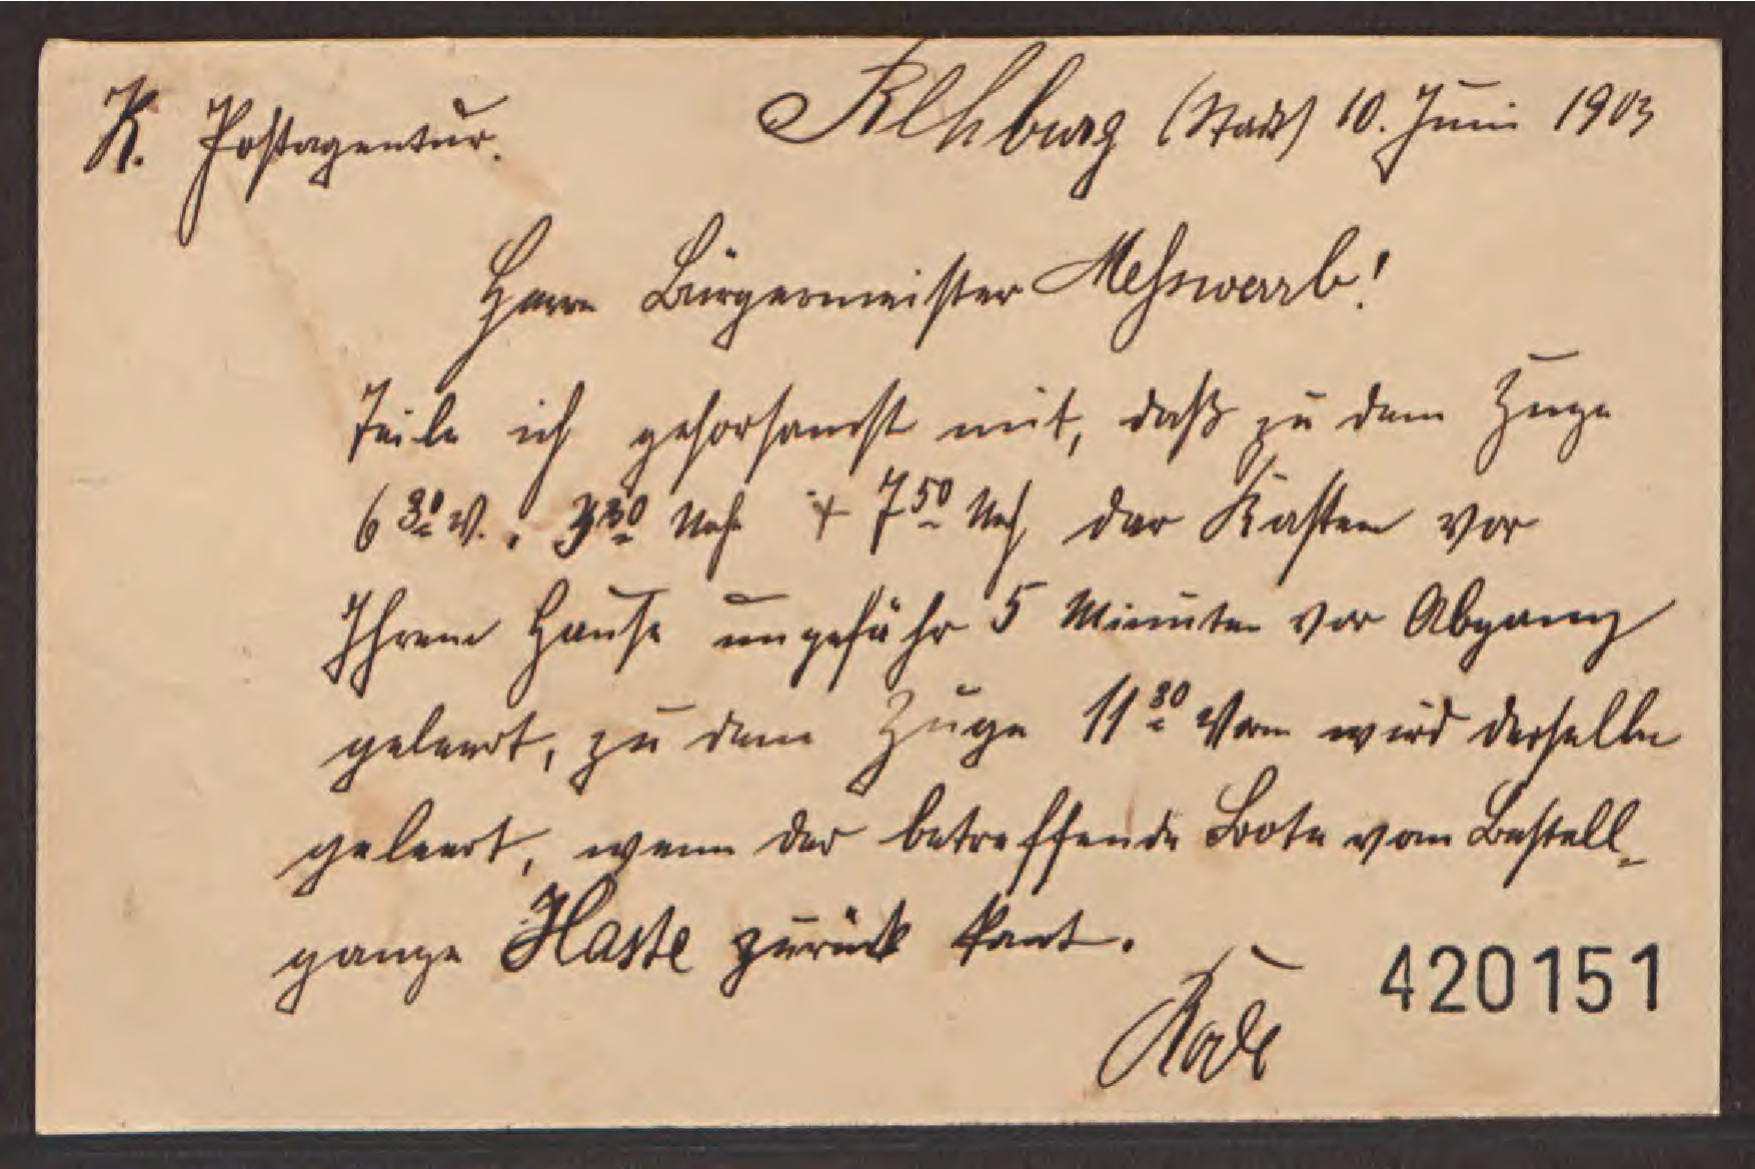 K. Postagentur. Rehburg (Stadt) 10. Juni 1903
Herrn Bürgermeister Meßwarb!
Teile ich gehorsamst mit, daß zu dem Zuge
6 30 V., 3 30 Nch + 7 50 Nch der Kasten vor
Ihrem Hause ungefähr 5 Minuten vor Abgang
geleert, zu dem Zuge 11 30 Vorm wird derselbe
geleert, wenn der betreffende Bote vom Bestell-
gange zurück
Rode
420151